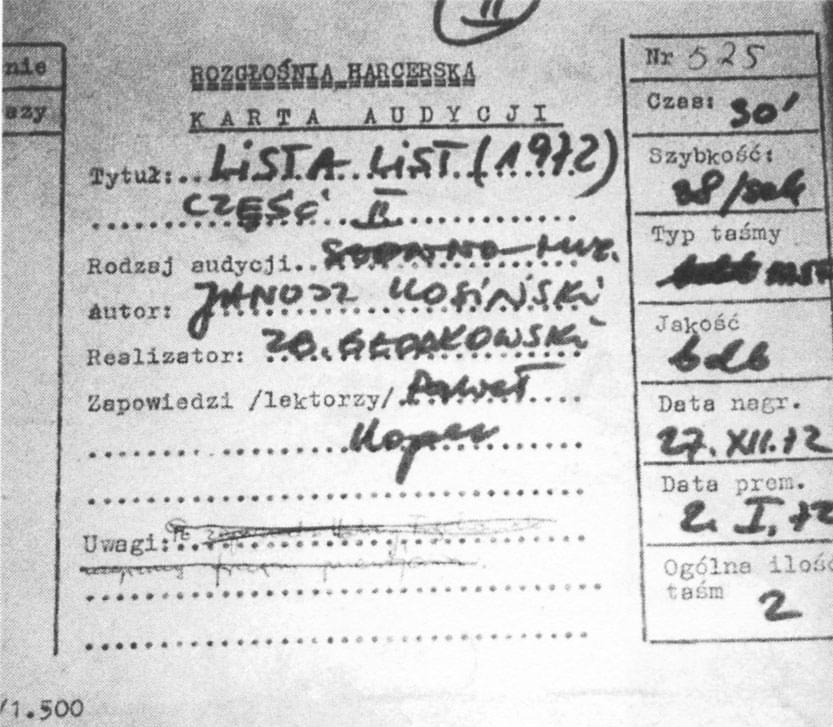 II
nie
azy
ROZGŁOŚNIA HARCERSKA
KARTA AUDYCJI
Tytuł: LISTA LIST (1972)
CZĘŚĆ II
Rodzaj audycji
Autor: JANUSZ KOSIŃSKI
Realizator: ZB.
Zapowiedzi /lektorzy/ Paweł
Uwagi:
Nr 525
Czas: 30'
Szybkość:
38/sek
Typ taśmy
Jakość
bdb
Data nagr.
27.XII.72
Data prem.
2. I. 72
Ogólna ilość
taśm 2
/1.500